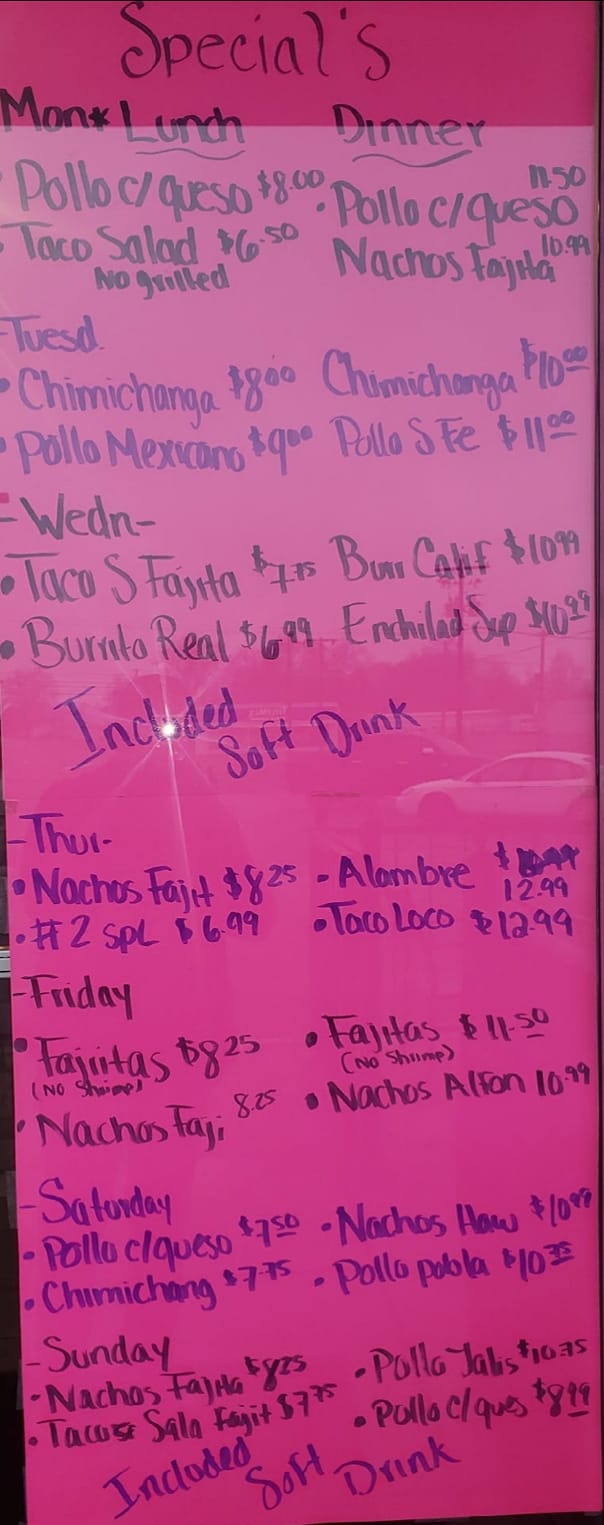 Special's
Mon* Lunch Dinner
Pollo c/queso $8.00 • Pollo c/queso 11.50
• Taco Salad $6.50 Nachos Fajita 10.99
No grilled
-Tuesd.
• Chimichanga $8.00 Chimichanga $10.00
• Pollo Mexicano $9.00 Pollo S Fe $11.00
-Wedn-
• Taco S Fajita $7.75 Burr Calif $10.99
• Burrito Real $6.99 Enchilad Sup $10.99
Included
Soft Drink
-Thur-
• Nachos Fajit $8.25 - Alambre $ 12.99
• #2 SPL $6.99 • Taco Loco $12.99
-Friday
• Fajiitas $8.25 • Fajitas $11.50
(No Shrimp) (No Shrimp)
• Nachos Faji 8.25 • Nachos Alfon 10.99
-Saturday
• Pollo c/queso $7.50 • Nachos Haw $10.99
• Chimichang $7.75 • Pollo pobla $10.75
-Sunday
• Nachos Fajita $8.25 • Pollo Jalis $10.75
• Tacos Sala Fajit $7.75 • Pollo c/ques $8.99
Included Soft Drink